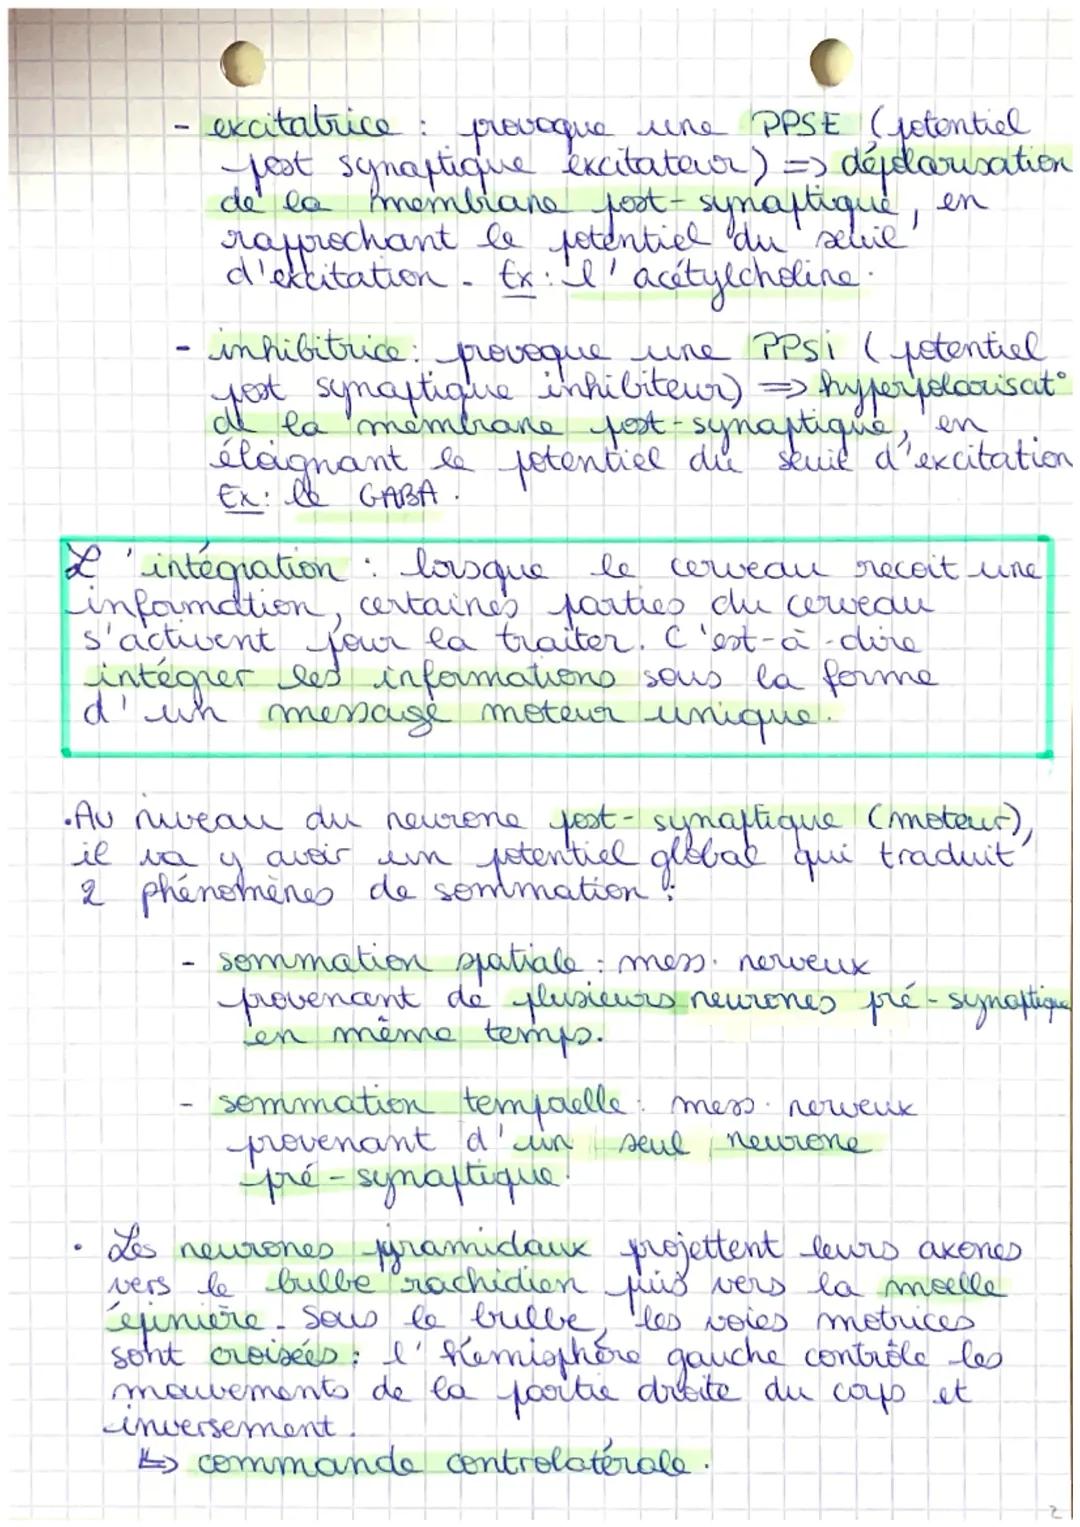 - excitatrice : provoque une PPSE (potentiel
post synaptique excitateur) => dépolarisation
de la membrane post-synaptique, en
rapprochant le potentiel du seuil
d'excitation. Ex : l'acétylcholine.
- inhibitrice : provoque une PPSi (potentiel
post synaptique inhibiteur) => hyperpolarisat°
de la membrane post-synaptique, en
éloignant le potentiel du seuil d'excitation
Ex : le GABA.
L'intégration : lorsque le cerveau recoit une
information, certaines parties du cerveau
s'activent pour la traiter. C'est-à-dire
intégrer les informations sous la forme
d'un message moteur unique.
•Au niveau du neurone post-synaptique (moteur),
il va y avoir un potentiel global qui traduit
2 phénomènes de sommation :
- sommation spatiale : mess. nerveux
provenant de plusieurs neurones pré-synaptique
en même temps.
- sommation temporelle : mess. nerveux
provenant d'un seul neurone
pré-synaptique.
• Les neurones pyramidaux projettent leurs axones
vers le bulbe rachidien puis vers la moelle
épinière. Sous le bulbe, les voies motrices
sont croisées : l'hémisphère gauche contrôle les
mouvements de la partie droite du corps et
inversement.
↳ commande controlatérale.
2